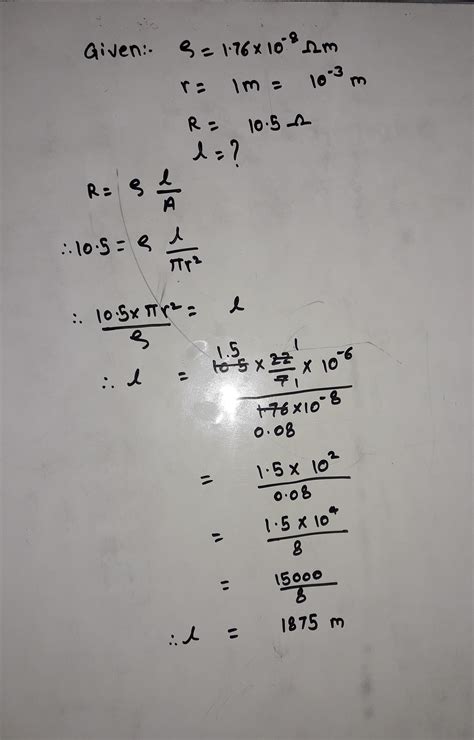 Given:- ρ = 1.76 × 10⁻⁸ Ωm
r = 1m = 10⁻³ m
R = 10.5 Ω
l = ?
R = ρ l/A
∴ 10.5 = ρ l/πr²
∴ 10.5 × πr²/ρ = l
1.5 1
∴ l = 10.5 × 22/7 × 10⁻⁶
1
1.76 × 10⁻⁸
0.08
= 1.5 × 10²/0.08
= 1.5 × 10⁴/8
= 15000/8
∴ l = 1875 m